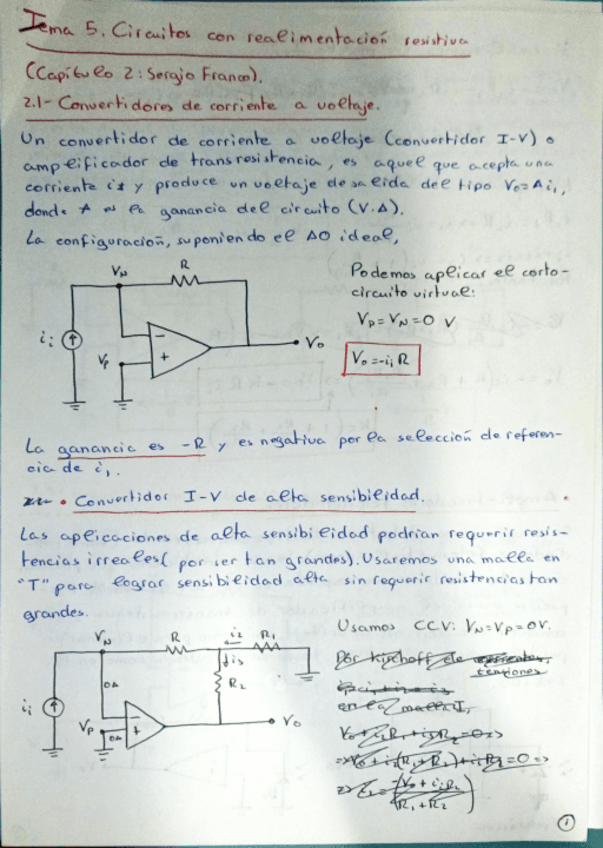 Tema 5. Circuitos con realimentación resistiva
(Capítulo 2: Sergio Franco).
2.1- Convertidores de corriente a voltaje.
Un convertidor de corriente a voltaje (convertidor I-V) o
amplificador de transresistencia, es aquel que acepta una
corriente i₁ y produce un voltaje de salida del tipo V₀=Ai₁,
donde A es la ganancia del circuito (V.A).
La configuración, suponiendo el AO ideal,
VN
R
ii
Vp
-
+
V₀
Podemos aplicar el corto-
circuito virtual:
Vp=VN=0 V
V₀=-i₁R
La ganancia es -R y es negativa por la selección de referen-
cia de i₁.
• Convertidor I-V de alta sensibilidad.
Las aplicaciones de alta sensibilidad podrían requerir resis-
tencias irreales( por ser tan grandes). Usaremos una malla en
"T" para lograr sensibilidad alta sin requerir resistencias tan
grandes.
VN
R
i₂
R₁
i₃
R₂
0A
ii
Vp
0A
-
+
V₀
Usamos CCV: VN=Vp=0V.
Por Kirchoff de
tensiones
en la malla I,
V₀+i₂R₁+i₃R₂=0=>
=>V₀+i₂(R₁+R₂)+i₁R₂=0=>
1